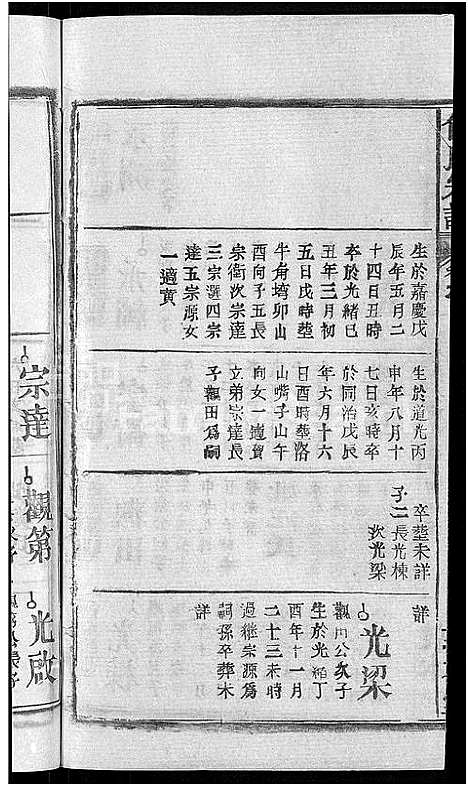 生於嘉慶戊
辰年五月二
十四日丑時
卒於光緒巳
丑年三月初
五日戌時塟
牛角塆卯山
酉向子五長
宗衛次宗達
三宗選四宗
達五宗源女
一適黄
生於道光丙
申年八月十
七日亥時卒
於同治戊辰
年六月十六
日酉時葬洛
山嘴子山午
向女一適賀
立弟宗達長
子觀田爲嗣
卒塟未詳
子二長光棟
次光梁
詳
光梁
觀田公次子
生於光緒丁
酉年十一月
二七三未時
過継宗源爲
嗣孫卒葬未
詳
宗達
觀第
光啟